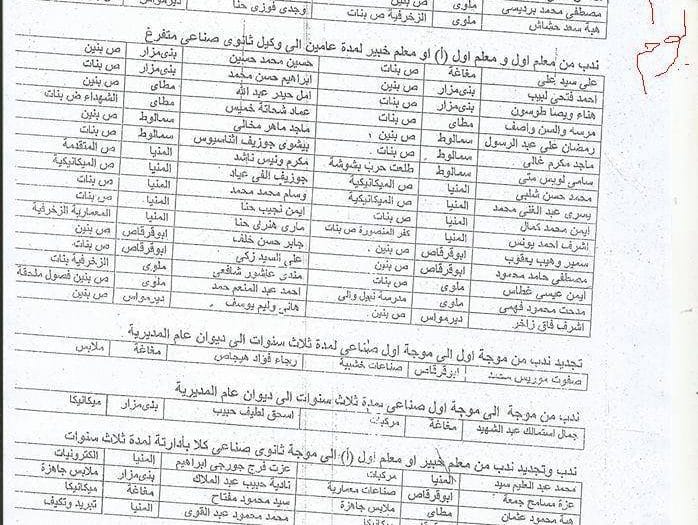 مصطفى محمد برديسي ملوى ص بنين
هبة سعد حشاش ملوى الزخرفية ص بنات وجدى فوزى حنا ديرمواس
ندب من معلم اول و معلم اول (أ) او معلم خبير لمدة عامين الى وكيل ثانوى صناعي متفرغ
على سيد على مغاغة ص بنات حسين محمد حسين بنى مزار ص بنين
احمد فتحي لبيب بنى مزار ص بنات ابراهيم حسن محمد بنى مزار ص بنات
هناء ويصا طوسون بنى مزار ص بنات امل حيدر عبد الله مطاى ص بنين
مرسه والسن واصف مطاى ص بنات عماد شحاتة خميس مطاى الشهداء ص بنات
رمضان على عبد الرسول سمالوط ص بنين ماجد ماهر مخالى سمالوط ص بنين
ماجد مكرم غالى سمالوط ص بنات بيشوى جوزيف اثناسيوس سمالوط ص بنات
سامى لويس متى سمالوط طلعت حرب بشوشة مكرم ونيس ناشد المنيا ص المتقدمة
محمد حسن شلبى المنيا ص الميكانيكية جوزيف الفى عياد المنيا ص الميكانيكية
يسرى عبد الغنى محمد المنيا ص الميكانيكية وسام محمد محمد المنيا ص بنات
ايمن محمد كمال المنيا ص بنات ايمن نجيب حنا المنيا ص بنات
اشرف احمد يونس المنيا كفر المنصورة ص بنات مارى هنرى حنا المنيا المعمارية الزخرفية
سمير وهيب يعقوب ابوقرقاص ص بنين جابر حسن خلف ابوقرقاص ص بنين
مصطفى حامد محمود ابوقرقاص ص بنين على السيد زكى ابوقرقاص ص بنات
ايمن عيسى غطاس ملوى ص بنات مندى عاشور شافعي ملوى الزخرفية بنات
مدحت محمود فهمى ملوى مدرسة نبيل والى احمد عبد المنعم حمد ملوى ص بنين فصول ملحقة
اشرف فانى زاخر ديرمواس ص بنين هانى وليم يوسف ديرمواس ص بنين
تجديد ندب من موجة اول الى موجة اول صناعي لمدة ثلاث سنوات الى ديوان عام المديرية
صفوت موريس ابوقرقاص صناعات خشبية رجاء فؤاد مغاغة ملابس
ندب من موجة الى موجة اول صناعي لمدة ثلاث سنوات الى ديوان عام المديرية
جمال استمالك عبد الشهيد مغاغة مركبات اسحق لطيف حبيب بنى مزار ميكانيكا
ندب وتجديد ندب من معلم خبير او معلم اول (أ) الى موجة ثانوى صناعي كلا بأدارتة لمدة ثلاث سنوات
محمد عبد العليم سيد المنيا مركبات عزت فرج جورجى ابراهيم المنيا الكترونيات
عزة مسامح جمعة ابوقرقاص صناعات معمارية نادية حبيب عبد الملاك بنى مزار ملابس جاهزة
هبة محمود عثمان مطاى ملابس جاهزة سيد محمود مفتاح مغاغة ميكانيكا
محمد محمود عبد القوى المنيا تبريد وتكييف